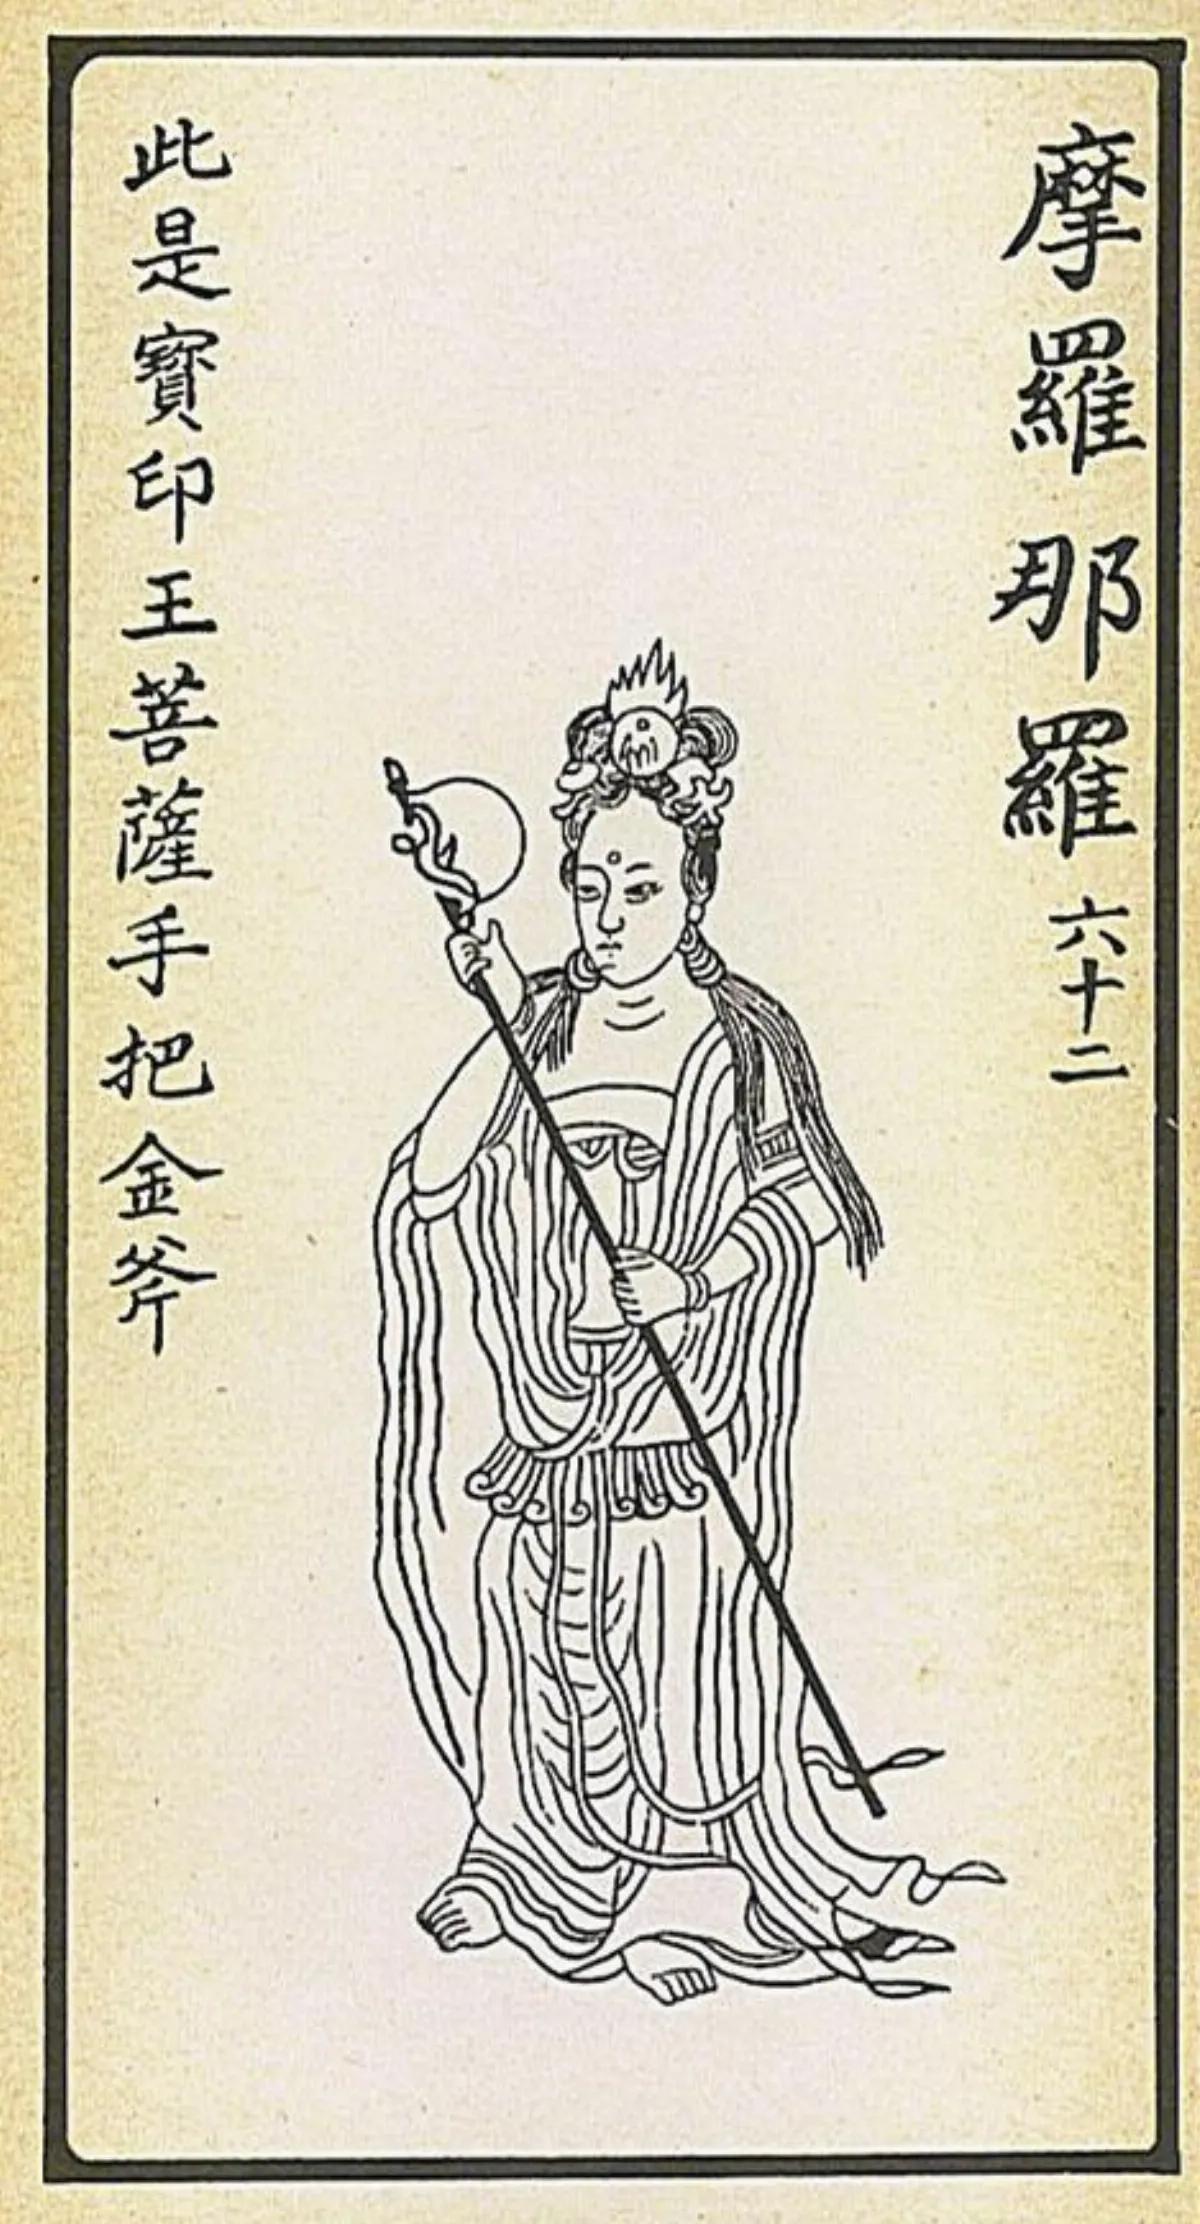 摩羅那羅六十二
此是寶印王菩薩手把金斧